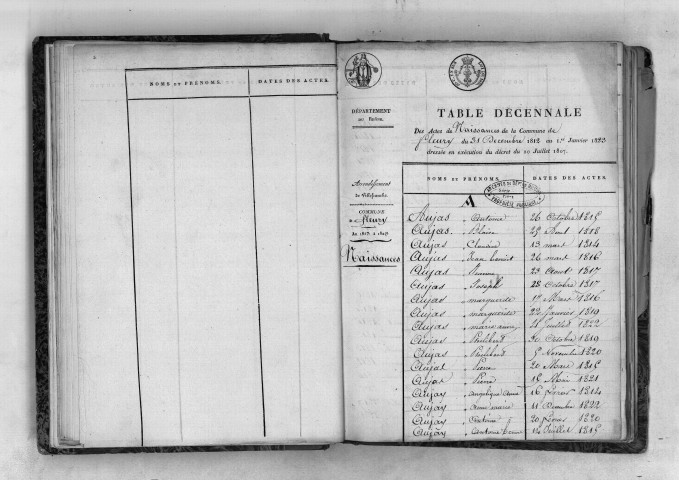 NOMS ET PRÉNOMS. DATES DES ACTES.
DÉPARTEMENT
du Rhône.
Arrondissement
de Villefranche
COMMUNE
de fleury
de 1813 à 1823
Naissances
TABLE DÉCENNALE
Des Actes de Naissances de la Commune de
fleury du 31 Décembre 1812 au 1er Janvier 1823
dressée en exécution du décret du 20 Juillet 1807.
NOMS ET PRÉNOMS. DATES DES ACTES.
A
Aujas Antoine 26 Octobre 1815
Aujas Blaise 25 Avril 1818
Aujas Claudine 13 mars 1814
Aujas Jean Benoit 26 mars 1816
Aujas 23 Aout 1817
Aujas Joseph 28 Octobre 1817
Aujas marguerite 17 Mars 1816
Aujas marguerite 22 Janvier 1819
Aujas marie 4 Juillet 1822
Aujas Philibert 30 Octobre 1819
Aujas Philibert 5 Novembre 1820
Aujas Pierre 20 Mars 1815
Aujas Pierre 15 1821
Aujas Angelique 16 février 1814
Aujas Anne marie 11 Décembre 1822
Aujas Antoine 20 février 1820
Aujas Antoine 12 Juillet 1815